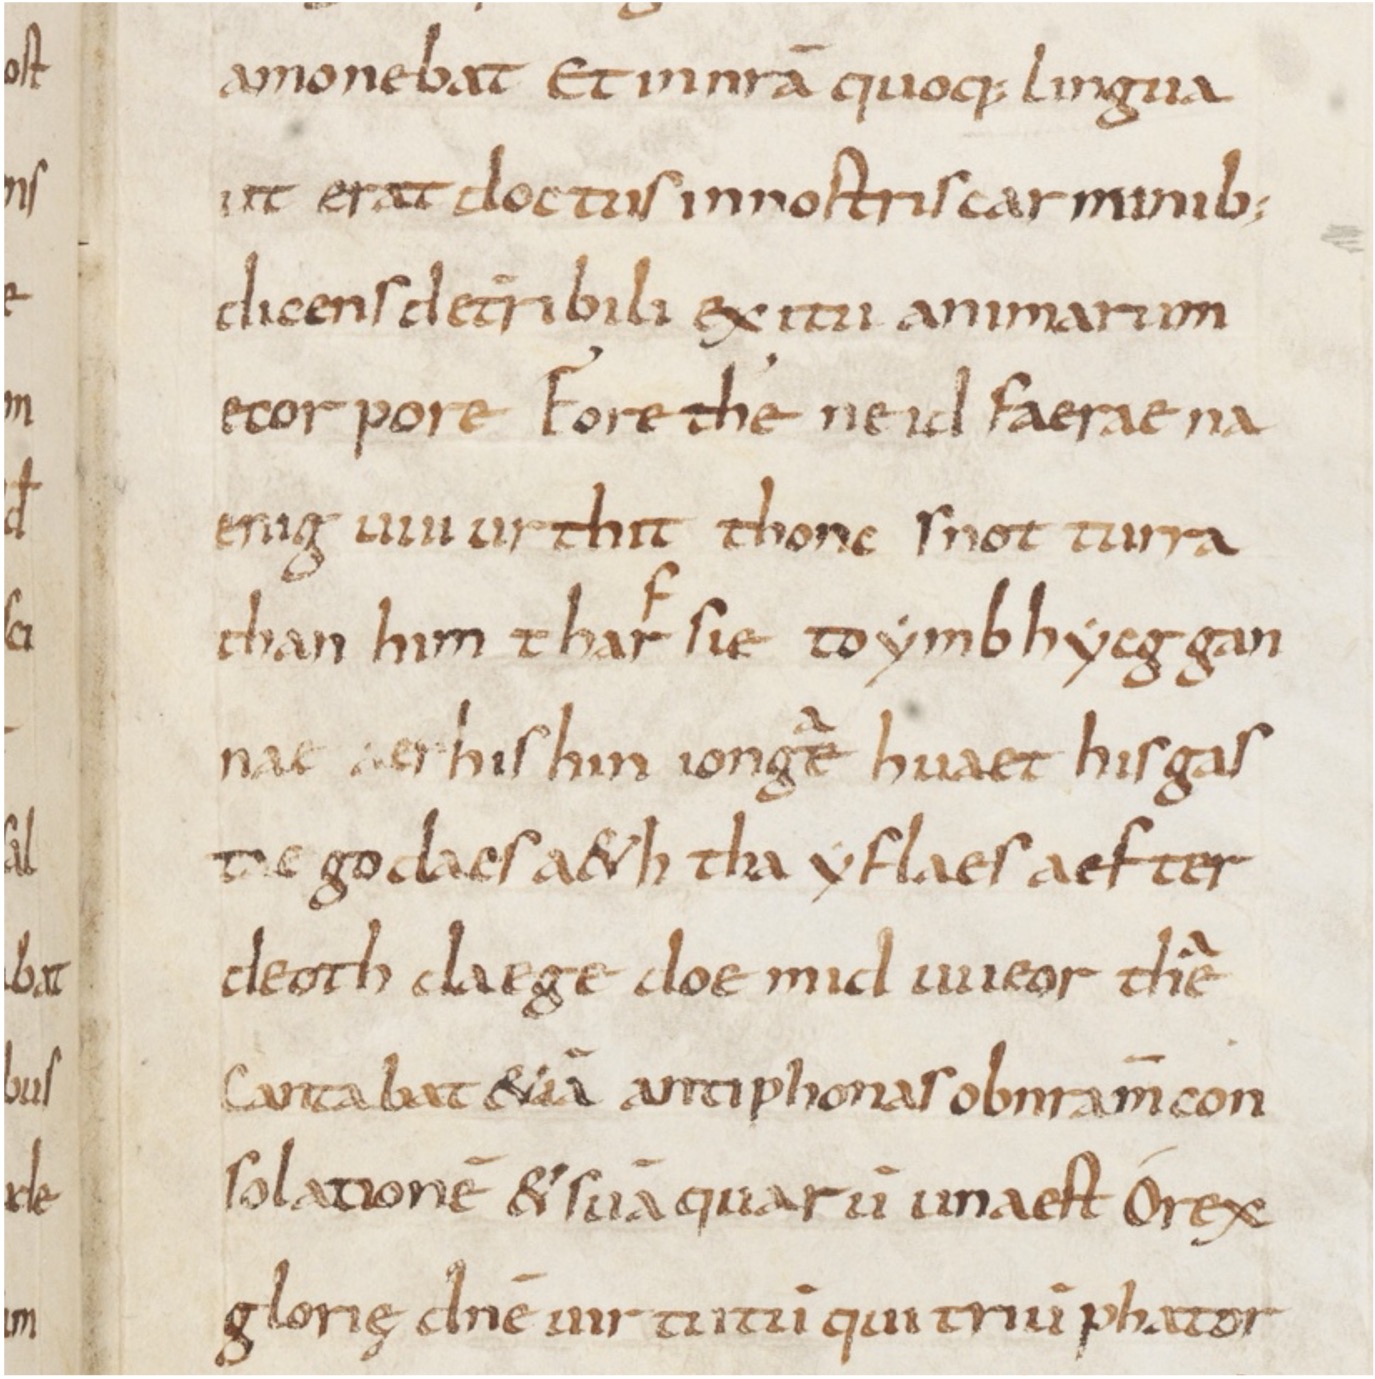 amonebat Et in nr̄ā quoq; lingua
ut erat doctus innostriscarminib;
dicens det̄ribili exitu animarum
ecorpore Fore thé neid faerae na
enig uuiurthit thonc snotturra
than him tharf sie toẏmbhẏcggan
nae aer his hin iongae huaet his gas
tae godaes a&h tha ẏflaes aefter
deoth daege doemid uueorthae
Cantabat &iā antiphonas obnr̄am̄ con
solationē & suā quarū una est O rex
glorię dn̄e uirtutū qui triūphator